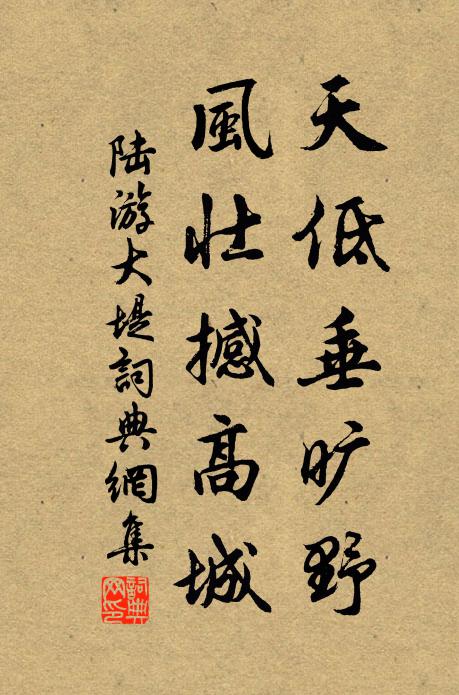 天低垂旷野
風壮撼高城
陆游大堤詞典網集
詞典网印